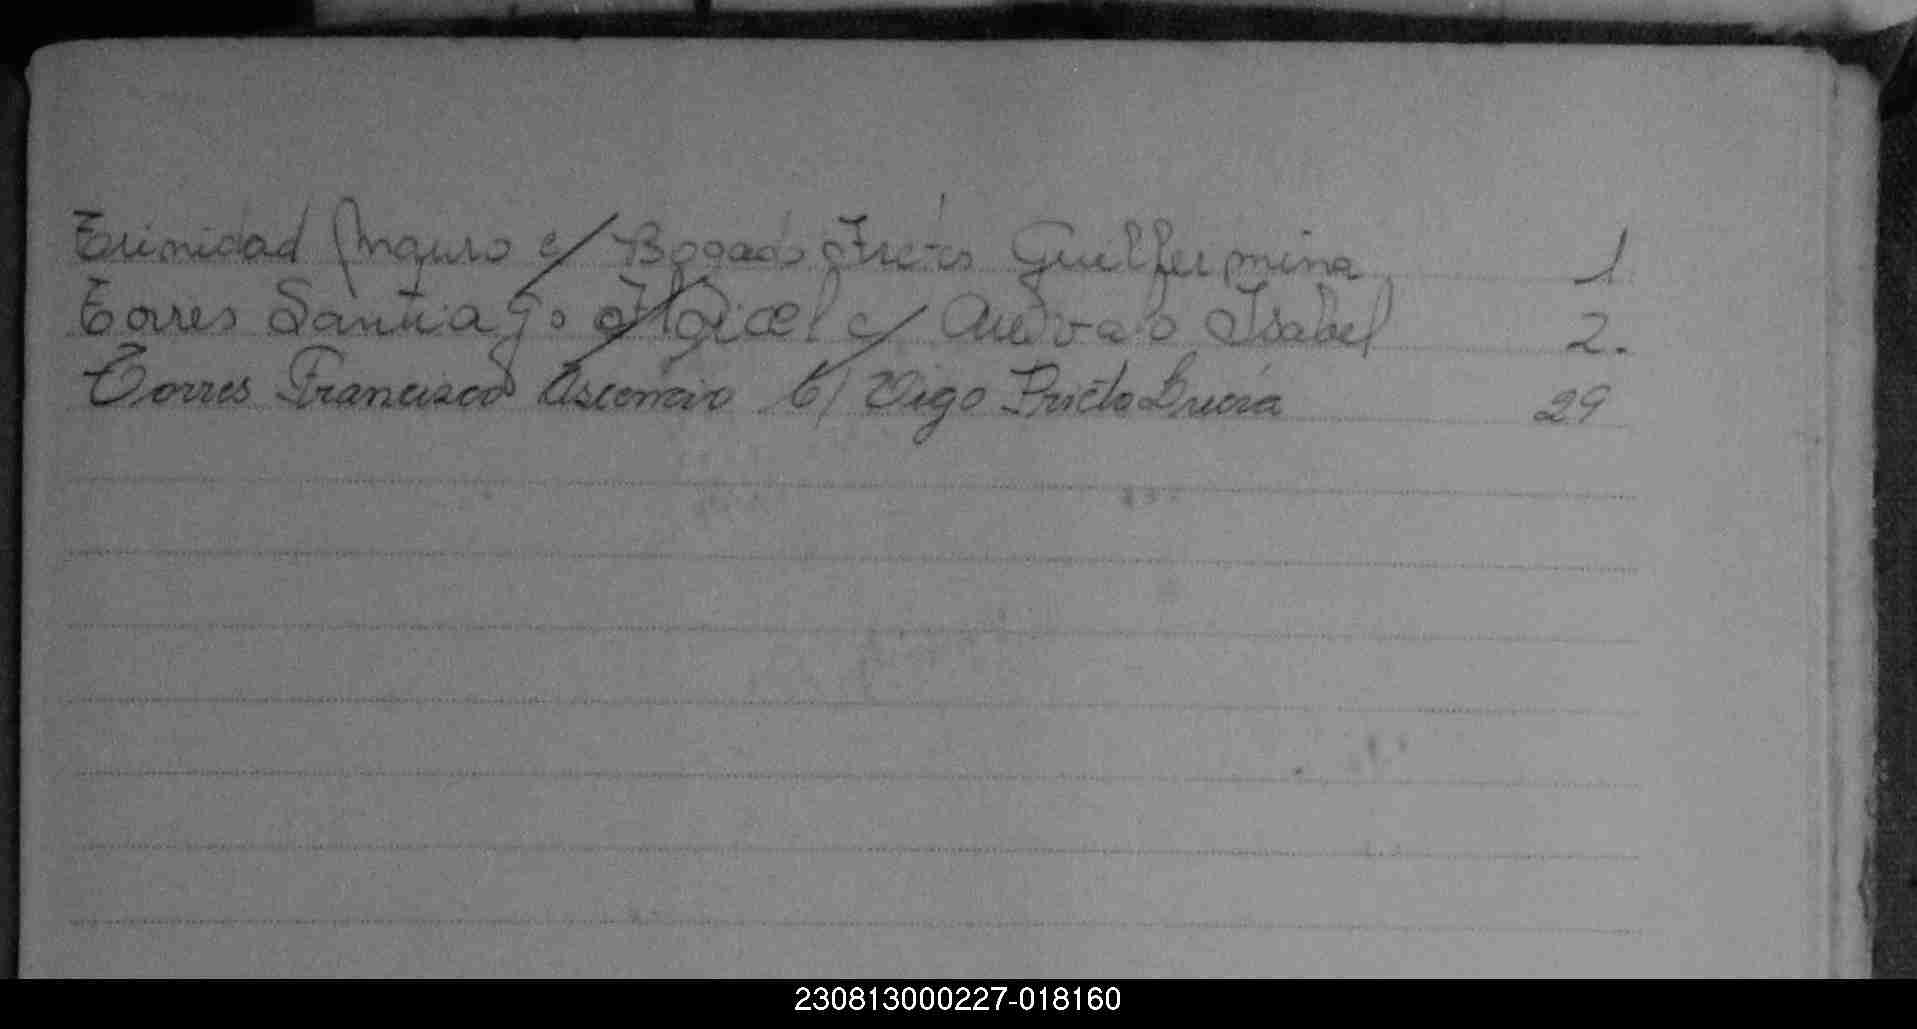 Trinidad Mauro c/ Bogado Fretes Guillermina 1
Torres Santiago c/ Arévalo Isabel 2.
Torres Francisco Ascencio C/ Vigo Prieto Lucía 29
230813000227-018160